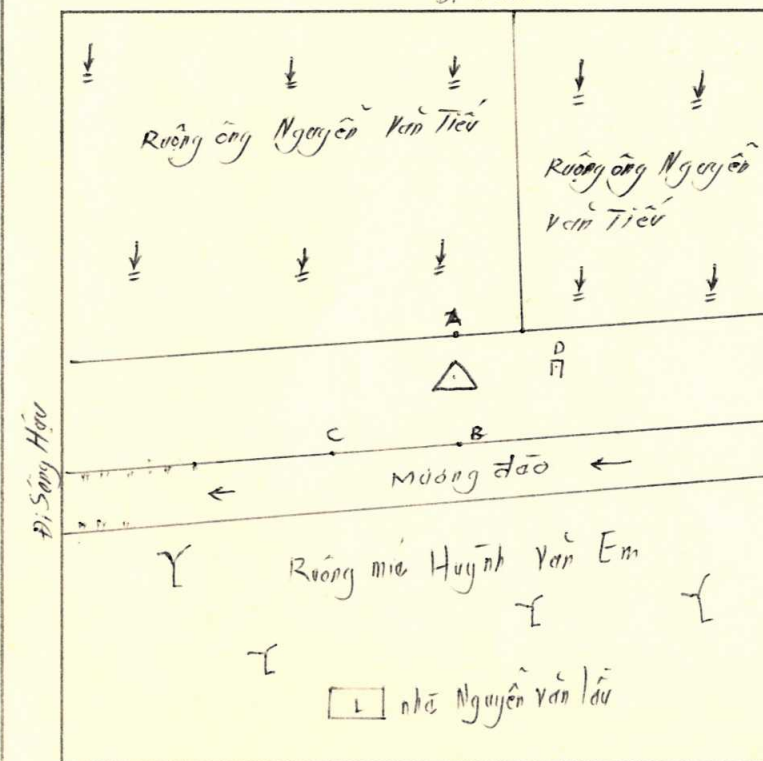 Ruộng ông Nguyễn Văn Tiếu
Ruộng ông Nguyễn
Văn Tiếu
A
D
C
B
Mương đào
Đi Sông Hậu
Ruộng mía Huỳnh Văn Em
1 nhà Nguyễn Văn lầu